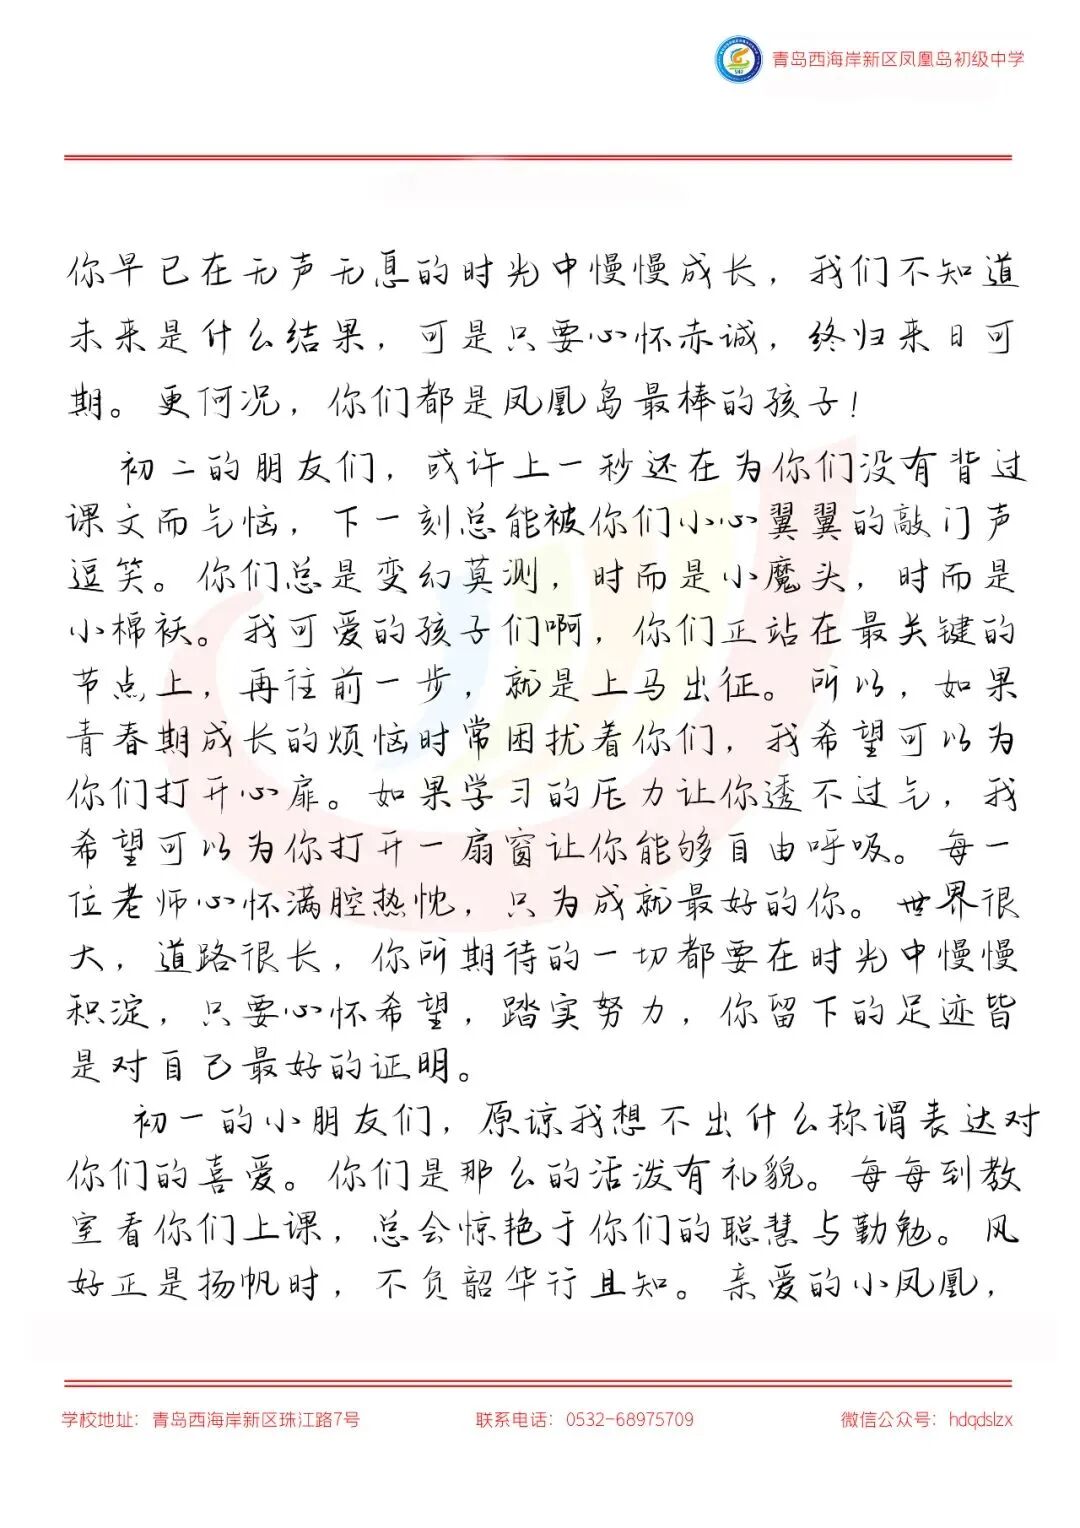 青岛西海岸新区凤凰岛初级中学
你早已在无声无息的时光中慢慢成长，我们不知道
未来是什么结果，可是只要心怀赤诚，终归来日可
期。更何况，你们都是凤凰岛最棒的孩子！
初二的朋友们，或许上一秒还在为你们没有背过
课文而气恼，下一刻总能被你们小心翼翼的敲门声
逗笑。你们总是变幻莫测，时而是小魔头，时而是
小棉袄。我可爱的孩子们啊，你们正站在最关键的
节点上，再往前一步，就是上马出征。所以，如果
青春期成长的烦恼时常困扰着你们，我希望可以为
你们打开心扉。如果学习的压力让你透不过气，我
希望可以为你打开一扇窗让你能够自由呼吸。每一
位老师心怀满腔热忱，只为成就最好的你。世界很
大，道路很长，你所期待的一切都要在时光中慢慢
积淀，只要心怀希望，踏实努力，你留下的足迹皆
是对自己最好的证明。
初一的小朋友们，原谅我想不出什么称谓表达对
你们的喜爱。你们是那么的活泼有礼貌。每每到教
室看你们上课，总会惊艳于你们的聪慧与勤勉。风
好正是扬帆时，不负韶华行且知。亲爱的小凤凰，
学校地址：青岛西海岸新区珠江路7号 联系电话：0532-68975709 微信公众号：hdqdslzx